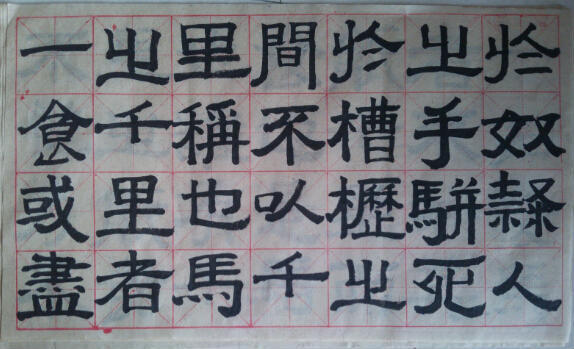 於奴隸人
之手駢死
於槽櫪之
間不以千
里稱也馬
之千里者
一食或盡